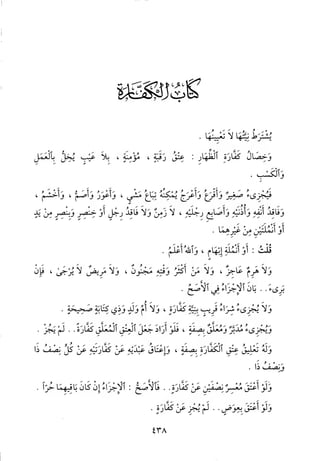 كِتَابُ الْكَفَّارَةِ
يُشْتَرَطُ نِيَّتُهَا لَا تَعْيِينُهَا .
وَخِصَالُ كَفَّارَةِ الظِّهَارِ : عِتْقُ رَقَبَةٍ ، مُؤْمِنَةٍ ، بِلَا عَيْبٍ يُخِلُّ بِالْعَمَلِ
وَالْكَسْبِ .
فَيُجْزِىءُ صَغِيرٌ وَأَقْرَعُ وَأَعْرَجُ يُمْكِنُهُ تِبَاعُ مَشْيٍ ، وَأَعْوَرُ وَأَصَمُّ ، وَأَخْشَمُ ،
وَفَاقِدُ أَنْفِهِ وَأُذُنَيْهِ وَأَصَابِعِ رِجْلَيْهِ ، لَا زَمِنٌ وَلَا فَاقِدُ رِجْلٍ أَوْ خِنْصِرٍ وَبِنْصِرٍ مِنْ يَدٍ
أَوْ أَنْمُلَتَيْنِ مِنْ غَيْرِهِمَا .
قُلْتُ : أَوْ أَنْمُلَةِ إِبْهَامٍ ، وَاللهُ أَعْلَمُ .
وَلَا هَرِمٌ عَاجِزٌ ، وَلَا مَنْ أَكْثَرُ وَقْتِهِ مَجْنُونٌ ، وَلَا مَرِيضٌ لَا يُرْجَىٰ ، فَإِنْ
بَرِىءَ.. بَانَ الْإِجْزَاءُ فِي الْأَصَحِّ .
وَلَا يُجْزِىءُ شِرَاءُ قَرِيبٍ بِنِيَّةِ كَفَّارَةٍ ، وَلَا أُمُّ وَلَدٍ وَذِي كِتَابَةٍ صَحِيحَةٍ .
وَيُجْزِىءُ مُدَبَّرٌ وَمُعَلَّقٌ بِصِفَةٍ ، فَلَوْ أَرَادَ جَعْلَ الْعِتْقِ الْمُعَلَّقِ كَفَّارَةً.. لَمْ يَجُزْ .
وَلَهُ تَعْلِيقُ عِتْقِ الْكَفَّارَةِ بِصِفَةٍ ، وَإِعْتَاقُ عَبْدَيْهِ عَنْ كَفَّارَتَيْهِ عَنْ كُلٍّ نِصْفُ ذَا
وَنِصْفُ ذَا .
وَلَوْ أَعْتَقَ مُعْسِرٌ نِصْفَيْنِ عَنْ كَفَّارَةٍ.. فَالْأَصَحُّ : الْإِجْزَاءُ إِنْ كَانَ بَاقِيهِمَا حُرّاً .
وَلَوْ أَعْتَقَ بِعِوَضٍ.. لَمْ يُجْزِ عَنْ كَفَّارَةٍ .
٤٣٨